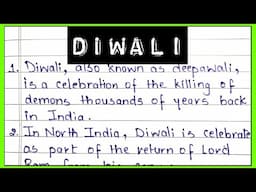 DIWALI
1. Diwali, also known as deepawali,
is a celebration of the killing of
demons thousands of years back
in India.
2. In North India, Diwali is celebrate
as part of the return of Lord
Ram from his